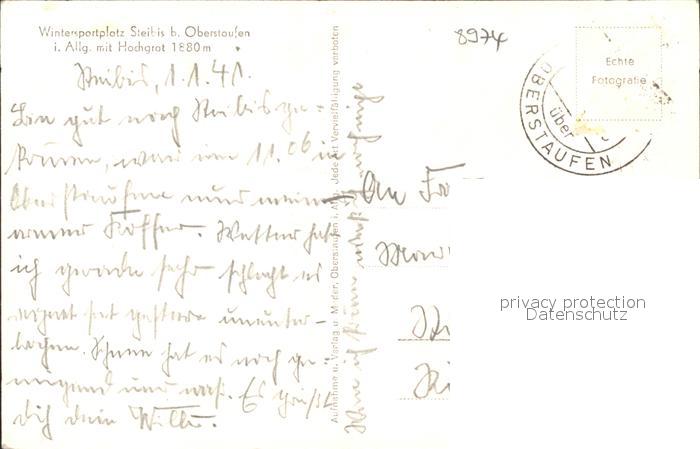 Wintersportplatz Steibis b. Oberstaufen
i. Allg. mit Hochgrat 1880 m
8974
Echte
Fotografie
über
OBERSTAUFEN
Steibis, 1.1.41.
Bin gut nach Steibis ge-
kommen, war um 11.06 in
Oberstaufen nur mein
armer Koffer. Wetter hab
ich gerade sehr schlecht es
regnet seit gestern ununter-
brochen. Schnee hat es noch ge-
nügend und Es grüßt
dich dein Willi.
Aufnahme u. Verlag u. Oberstaufen i. Allg. Jede Art Vervielfältigung verboten
Wenn ich nur
An Fr
privacy protection
Datenschutz